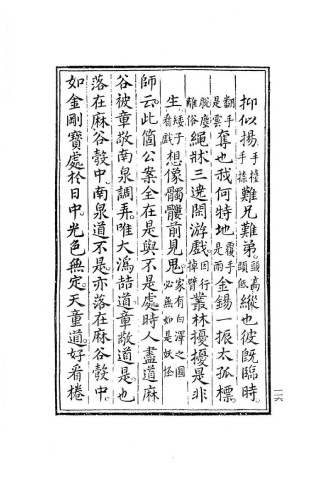 抑似揚手擡手搦難兄難弟頭高頭低縱也彼既臨時
翻手是雲奪也我何特地覆手是雨金錫一振太孤標
脫塵離俗繩牀三遶閑游戲因行掉臂叢林擾擾是非
生矮子看戲想像髑髏前見鬼家有白澤之圖必無如是妖怪
師云此箇公案全在是與不是處時人盡道麻
谷被章敬南泉調弄唯大溈喆道章敬道是也
落在麻谷彀中南泉道不是亦落在麻谷彀中
如金剛寶處於日中光色無定天童道好看棬